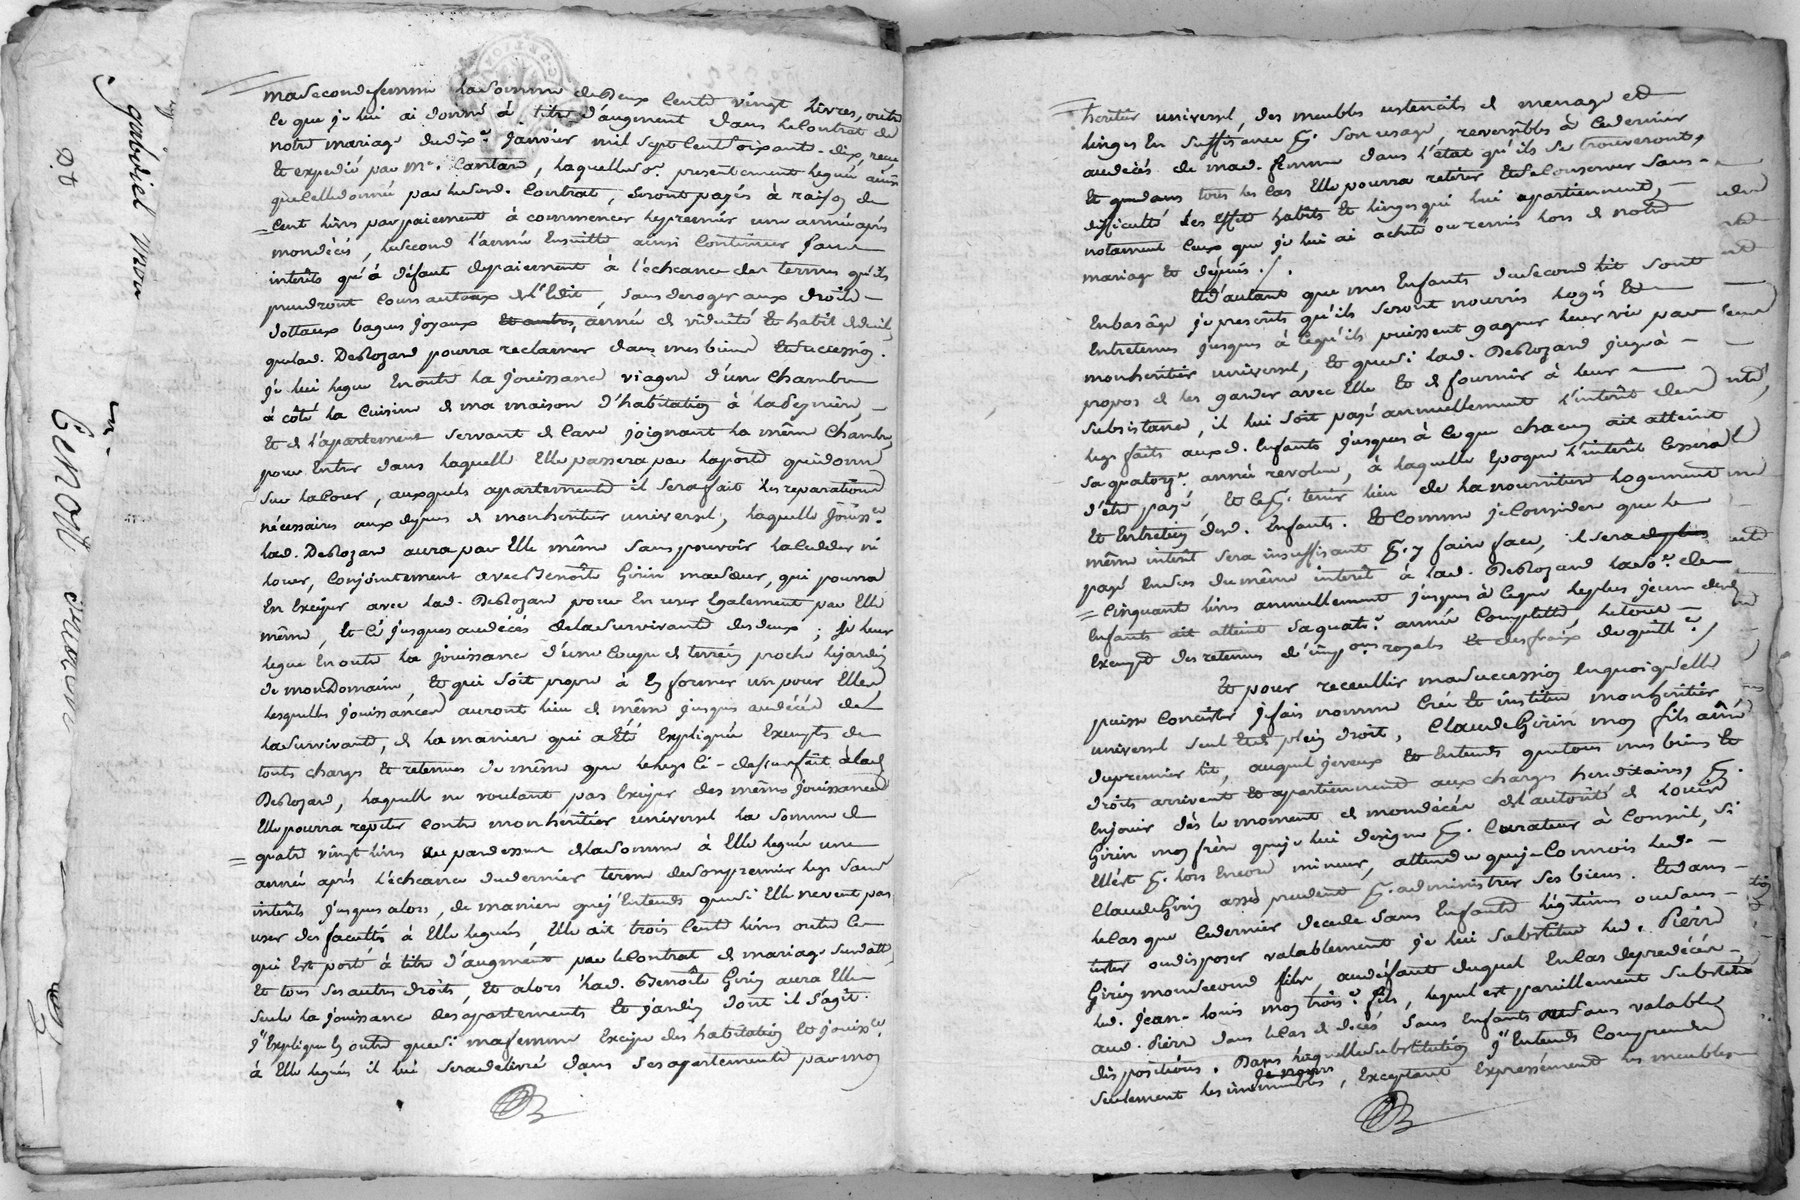 ma seconde femme la somme de deux cents vingt livres, outre
ce que je lui ai donné à titre d'augment dans le Contrat de
notre mariage du dixe. Janvier mil sept cent soixante-dix, reçu
et expedié par Me. Cantard, laquelle so.e presentement leguée ainsi
que celle donnée par le susd. Contrat, seront payés à raison de
Cent livres par paiement à commencer le premier une année après
mon décès, le second l'année Ensuitte ainsi Continuer sans
interêts qu'à défaut de paiement à l'échéance des termes qu'ils
prendront cours au taux de l'Edit, sans deroger aux droits
dottaux bagues joyaux et autres, année de viduité et habit de deuil
que lad. Deslozard pourra reclamer dans mes biens et succession.
je lui legue En outre la jouissance viagere d'une Chambre
à côté la Cuisine de ma maison d'habitation à
Et de l'apartement servant de Cave joignant la même Chambre,
pour Entrer dans laquelle Elle passera par la porte qui donne
sur la Cour, auxquels apartements il sera fait les reparations
nécessaires aux depens de mon heritier universel, laquelle jouiss.ce
lad. Deslozard aura par Elle même sans pouvoir la cedder ni
louer, Conjointement avec Benoîte Girin ma sœur, qui pourra
En Exiger avec lad. Deslozard pour En user Egalement par Elle
même, Et ce jusques au décès de la survivante des deux; je leur
legue En outre la jouissance d'une Coupe de terrein proche le jardin
de mon Domaine, Et qui soit propre à En former un pour Elles,
lesquelles jouissances auront lieu de même jusques au décès de
la survivante, de la maniere qui a Eté Expliquée Exempts de
touts charges Et retenues de même que le legs ci-dessus fait à lad.
Deslozard, laquelle ne voulant pas Exiger des mêmes jouissances
Elle pourra repeter contre mon heritier universel la somme de
quatre vingt livres au par dessus de la somme à Elle leguée une
année après l'échéance du dernier terme de son premier legs sans
interêts jusques alors, de maniere que j'Entends que si Elle ne veut pas
user des facultés à Elle leguées, Elle ait trois Cents livres outre ce
qui Est porté à titre d'augment par le Contrat de mariage susdatté
Et tous ses autres droits, Et alors lad. Benoîte Girin aura Elle
seule la jouissance des apartements Et jardin dont il s'agit.
j'Explique En outre que si ma femme Exige des habitation Et jouiss.ce
à Elle leguées il lui sera delivré dans ses apartements par mon
heritier universel, des meubles ustencils de menage et
linges En suffisance p.r son usage, reversibles à ce dernier
au décès de mad. femme dans l'état qu'ils se trouveront,
Et que dans tous les Cas Elle pourra retirer Et se Conserver sans
difficulté des effets habits Et linges qui lui apartiennent,
notament Ceux que je lui ai acheté ou remis lors de notre
mariage Et depuis ./.
Et d'autant que mes Enfants du second lit sont
En bas âge je prescrits qu'ils seront nourris logés Et
Entretenus jusques à ce qu'ils puissent gagner leur vie par
mon heritier universel, Et que si lad. Deslozard juge à
propos de les garder avec Elle Et de fournir à leur
subsistance, il lui soit payé annuellement l'interêt des
legs faits auxd. Enfants jusques à ce que chacun ait atteint
sa quatorz.e année revolue, à laquelle Epoque l'interêt cessera
d'être payé, Et ce p.r tenir lieu de la nourriture logement
Et Entretien desd. Enfants. Et comme je Considere que le
même interêt sera insuffisant p.r y faire face, il sera de plus
payé En sus du même interêt à lad. Deslozard la so.e de
Cinquante livres annuellement jusques à ce que le plus jeune desd.
Enfants ait atteint sa quatz.e année Complette, le tout
Exempt des retenues d'impons royales Et des fraix de quitt.e ./
Et pour receuillir ma succession En quoi qu'elle
puisse Concister je fais nomme Crée Et institue mon heritier
universel seul Et de plein droit, Claude Girin mon fils aîné
du premier lit, auquel je veux Et Entends que tous mes biens Et
droits arrivent Et apartiennent aux charges hereditaires, p.r
En jouir dès le moment de mon décès de l'autorité de Louis
Girin mon frere que je lui designe p.r Curateur à Conseil, si
Il est p.r lors Encore mineur, attendu que je Connois led.
Claude Girin assés prudent p.r administrer ses biens. Et dans
le Cas que ce dernier decede sans Enfants légitimes ou sans
tester ou disposer valablement je lui substitue led. Pierre
Girin mon second fils, au défaut duquel En Cas de predécès,
led. Jean-Louis mon trois.e fils, lequel est pareillement substitué
aud. Pierre dans le Cas de décès sans Enfants ou sans valables
dispositions. Dans laquelle substitution j'Entends Comprendre
seulement les immeubles, Exceptant Expressément les meubles